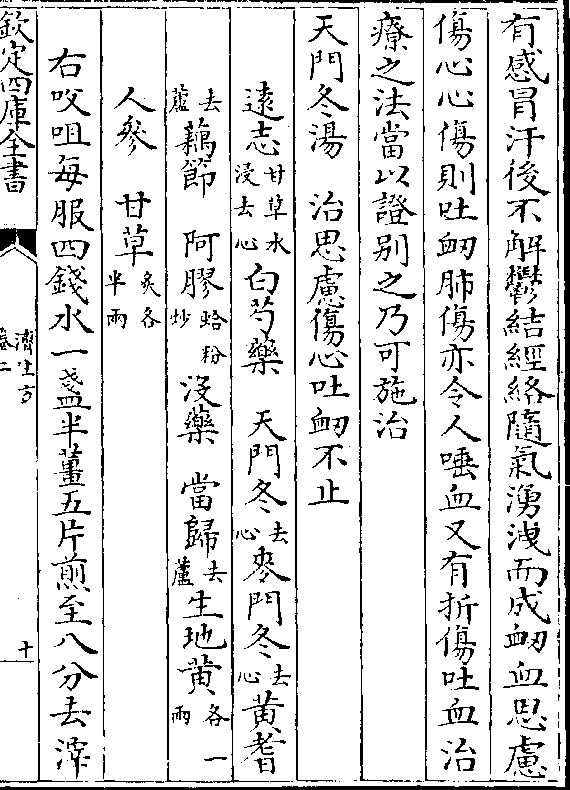 有感冒汗後不解鬱結經絡隨氣湧洩而成衂血思慮
傷心心傷則吐衂肺傷亦令人唾血又有折傷吐血治
療之法當以證别之乃可施治
天門冬湯　治思慮傷心吐衂不止
遠志甘草水浸去心　白芍藥　天門冬去心　麥門冬去心　黄耆
去蘆　藕節　阿膠蛤粉炒　没藥　當歸去蘆　生地黄各一兩
人參　甘草炙各半兩
右㕮咀每服四錢水一盞半薑五片煎至八分去滓
欽定四庫全書
濟生方
卷二
十